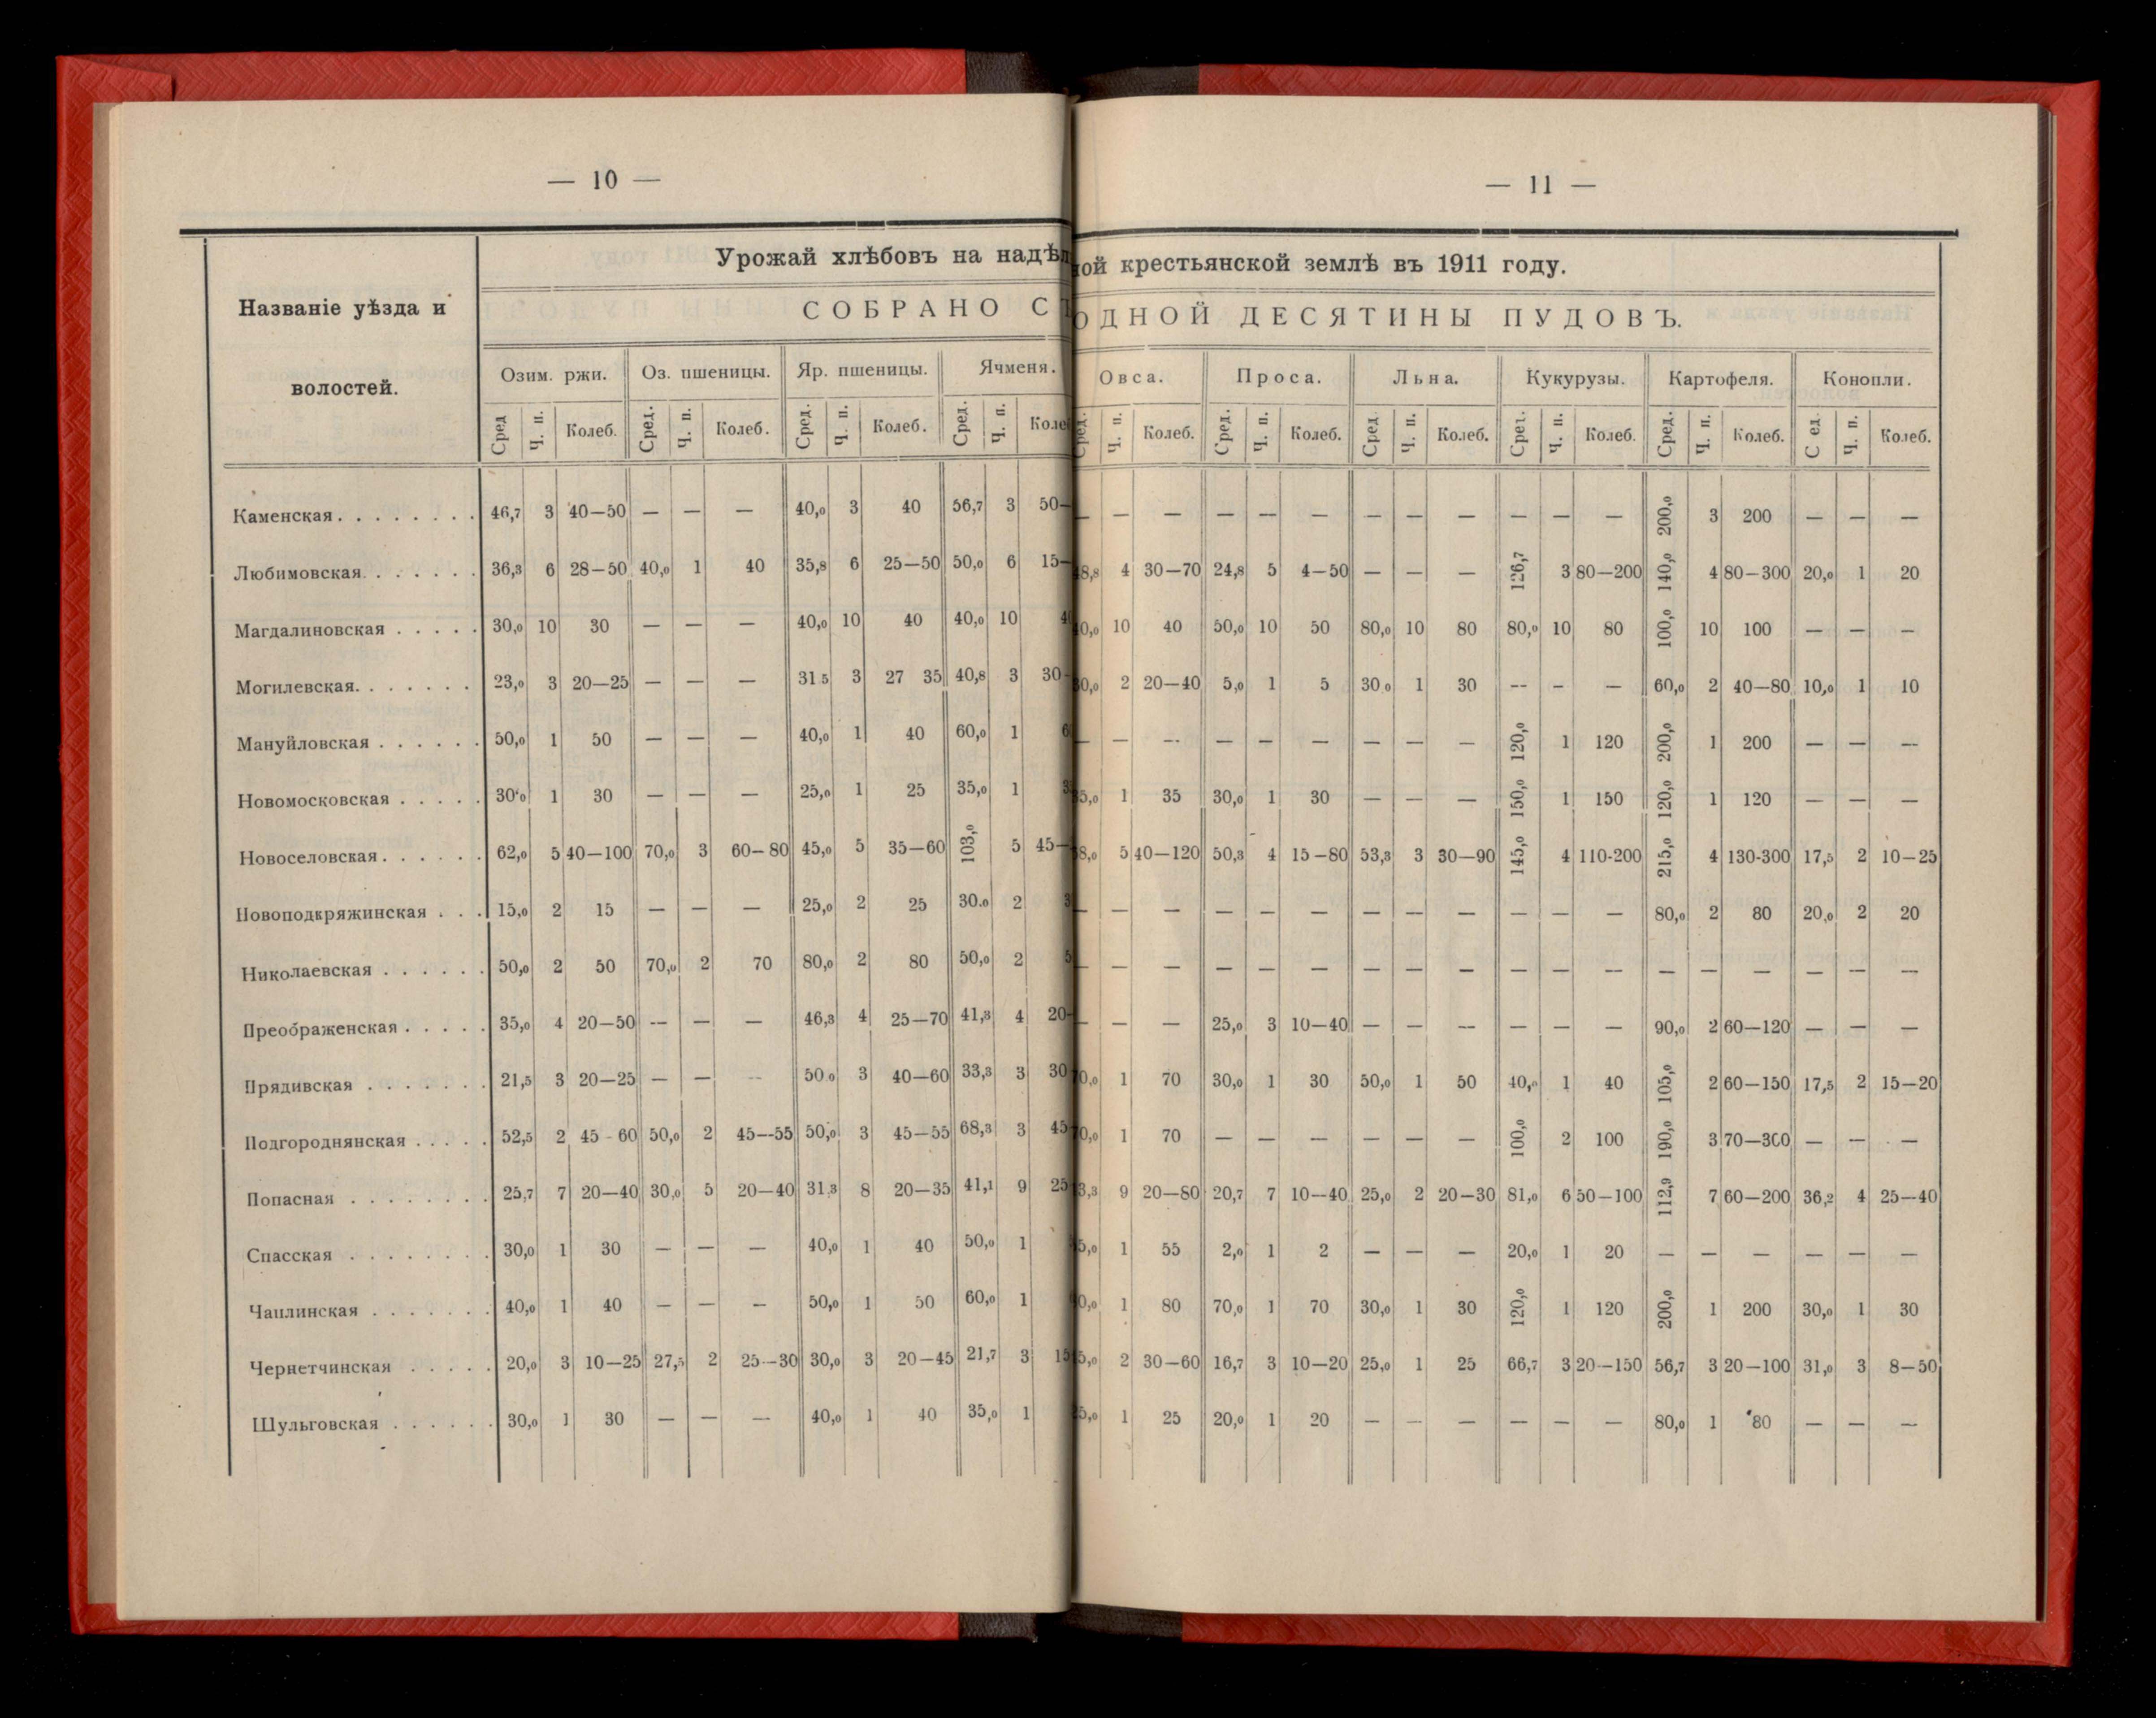 — 10 —
— 11 —
Урожай хлѣбовъ на надѣльной крестьянской землѣ въ 1911 году.
Названіе уѣзда и
волостей.
СОБРАНО СЪ ОДНОЙ ДЕСЯТИНЫ ПУДОВЪ.
Озим. ржи. Оз. пшеницы. Яр. пшеницы. Ячменя. Овса. Проса. Льна. Кукурузы. Картофеля. Конопли.
Сред Ч. п. Колеб. Сред. Ч. п. Колеб. Сред. Ч. п. Колеб. Сред. Ч. п. Ч. п. Колеб. Сред. Ч. п. Колеб. Сред Ч. п. Колеб. Сред. Ч. п. Колеб. Сред. Ч. п. Колеб. С ед. Ч. п. Колеб.
Каменская 46,7 3 40—50 — — — 40,0 3 40 56,7 3 50— — — — — — — — — — — — — 200,0 3 200 — — —
Любимовская 36,3 6 28—50 40,0 1 40 35,8 6 25—50 50,0 6 15— 4 30—70 24,8 5 4—50 — — — 126,7 3 80—200 140,0 4 80—300 20,0 1 20
Магдалиновская 30,0 10 30 — — — 40,0 10 40 40,0 10 10 40 50,0 10 50 80,0 10 80 80,0 10 80 100,0 10 100 — — —
Могилевская 23,0 3 20—25 — — — 31 5 3 27 35 40,8 3 30— 2 20—40 5,0 1 5 30 0 1 30 — — — 60,0 2 40—80 10,0 1 10
Мануйловская 50,0 1 50 — — — 40,0 1 40 60,0 1 — — — — — — — — — 120,0 1 120 200,0 1 200 — — —
Новомосковская 30‘0 1 30 — — — 25,0 1 25 35,0 1 1 35 30,0 1 30 — — — 150,0 1 150 120,0 1 120 — — —
Новоселовская 62,0 5 40—100 70,0 3 60—80 45,0 5 35—60 103,0 5 45— 5 40—120 50,3 4 15—80 53,3 3 30—90 145,0 4 110-200 215,0 4 130-300 17,5 2 10—25
Новоподкряжинская 15,0 2 15 — — — 25,0 2 25 30.0 2 — — — — — — — — — — — — 80,0 2 80 20,0 2 20
Николаевская 50,0 2 50 70,0 2 70 80,0 2 80 50,0 2 — — — — — — — — — — — — — — — — — —
Преображенская 35,0 4 20—50 — — — 46,3 4 25—70 41,3 4 20— — — — 25,0 3 10—40 — — — — — — 90,0 2 60—120 — — —
Прядивская 21,5 3 20—25 — — — 50 0 3 40—60 33,3 3 30 1 70 30,0 1 30 50,0 1 50 40,0 1 40 105,0 2 60—150 17,5 2 15—20
Подгороднянская 52,5 2 45 - 60 50,0 2 45—55 50,0 3 45—55 68,3 3 45 1 70 — — — — — — 100,0 2 100 190,0 3 70—300 — — —
Попасная 25,7 7 20—40 30,0 5 20—40 31,3 8 20—35 41,1 9 25 9 20—80 20,7 7 10—40 25,0 2 20—30 81,0 6 50—100 112,9 7 60—200 36,2 4 25—40
Спасская 30,0 1 30 — — — 40,0 1 40 50,0 1 1 55 2,0 1 2 — — — 20,0 1 20 — — — — — —
Чаплинская 40,0 1 40 — — — 50,0 1 50 60,0 1 1 80 70,0 1 70 30,0 1 30 120,0 1 120 200,0 1 200 30,0 1 30
Чернетчинская 20,0 3 10—25 27,5 2 25—30 30,0 3 20—45 21,7 3 15 2 30—60 16,7 3 10—20 25,0 1 25 66,7 3 20—150 56,7 3 20—100 31,0 3 8—50
Шульговская 30,0 1 30 — — — 40,0 1 40 35,0 1 1 25 20,0 1 20 — — — — — — 80,0 1 80 — — —